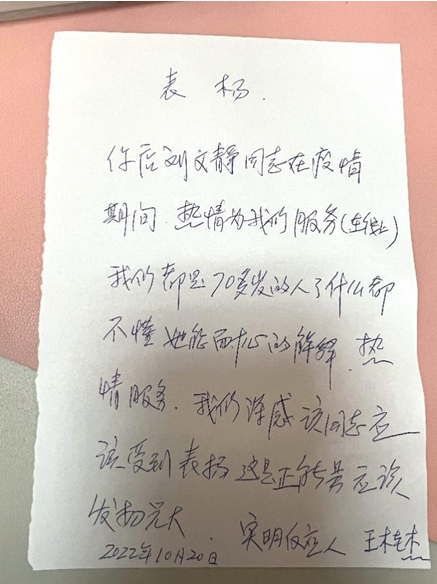 表 杨.
你店刘文静同志在疫情
期间.热情为我们服务(在线上)
我们都是70多岁的人了什么都
不懂她能耐心的解释.热
情服务.我们深感该同志应
该受到表扬这是正能量应该
发扬光大.
2022年10月20日 实明 人 王木